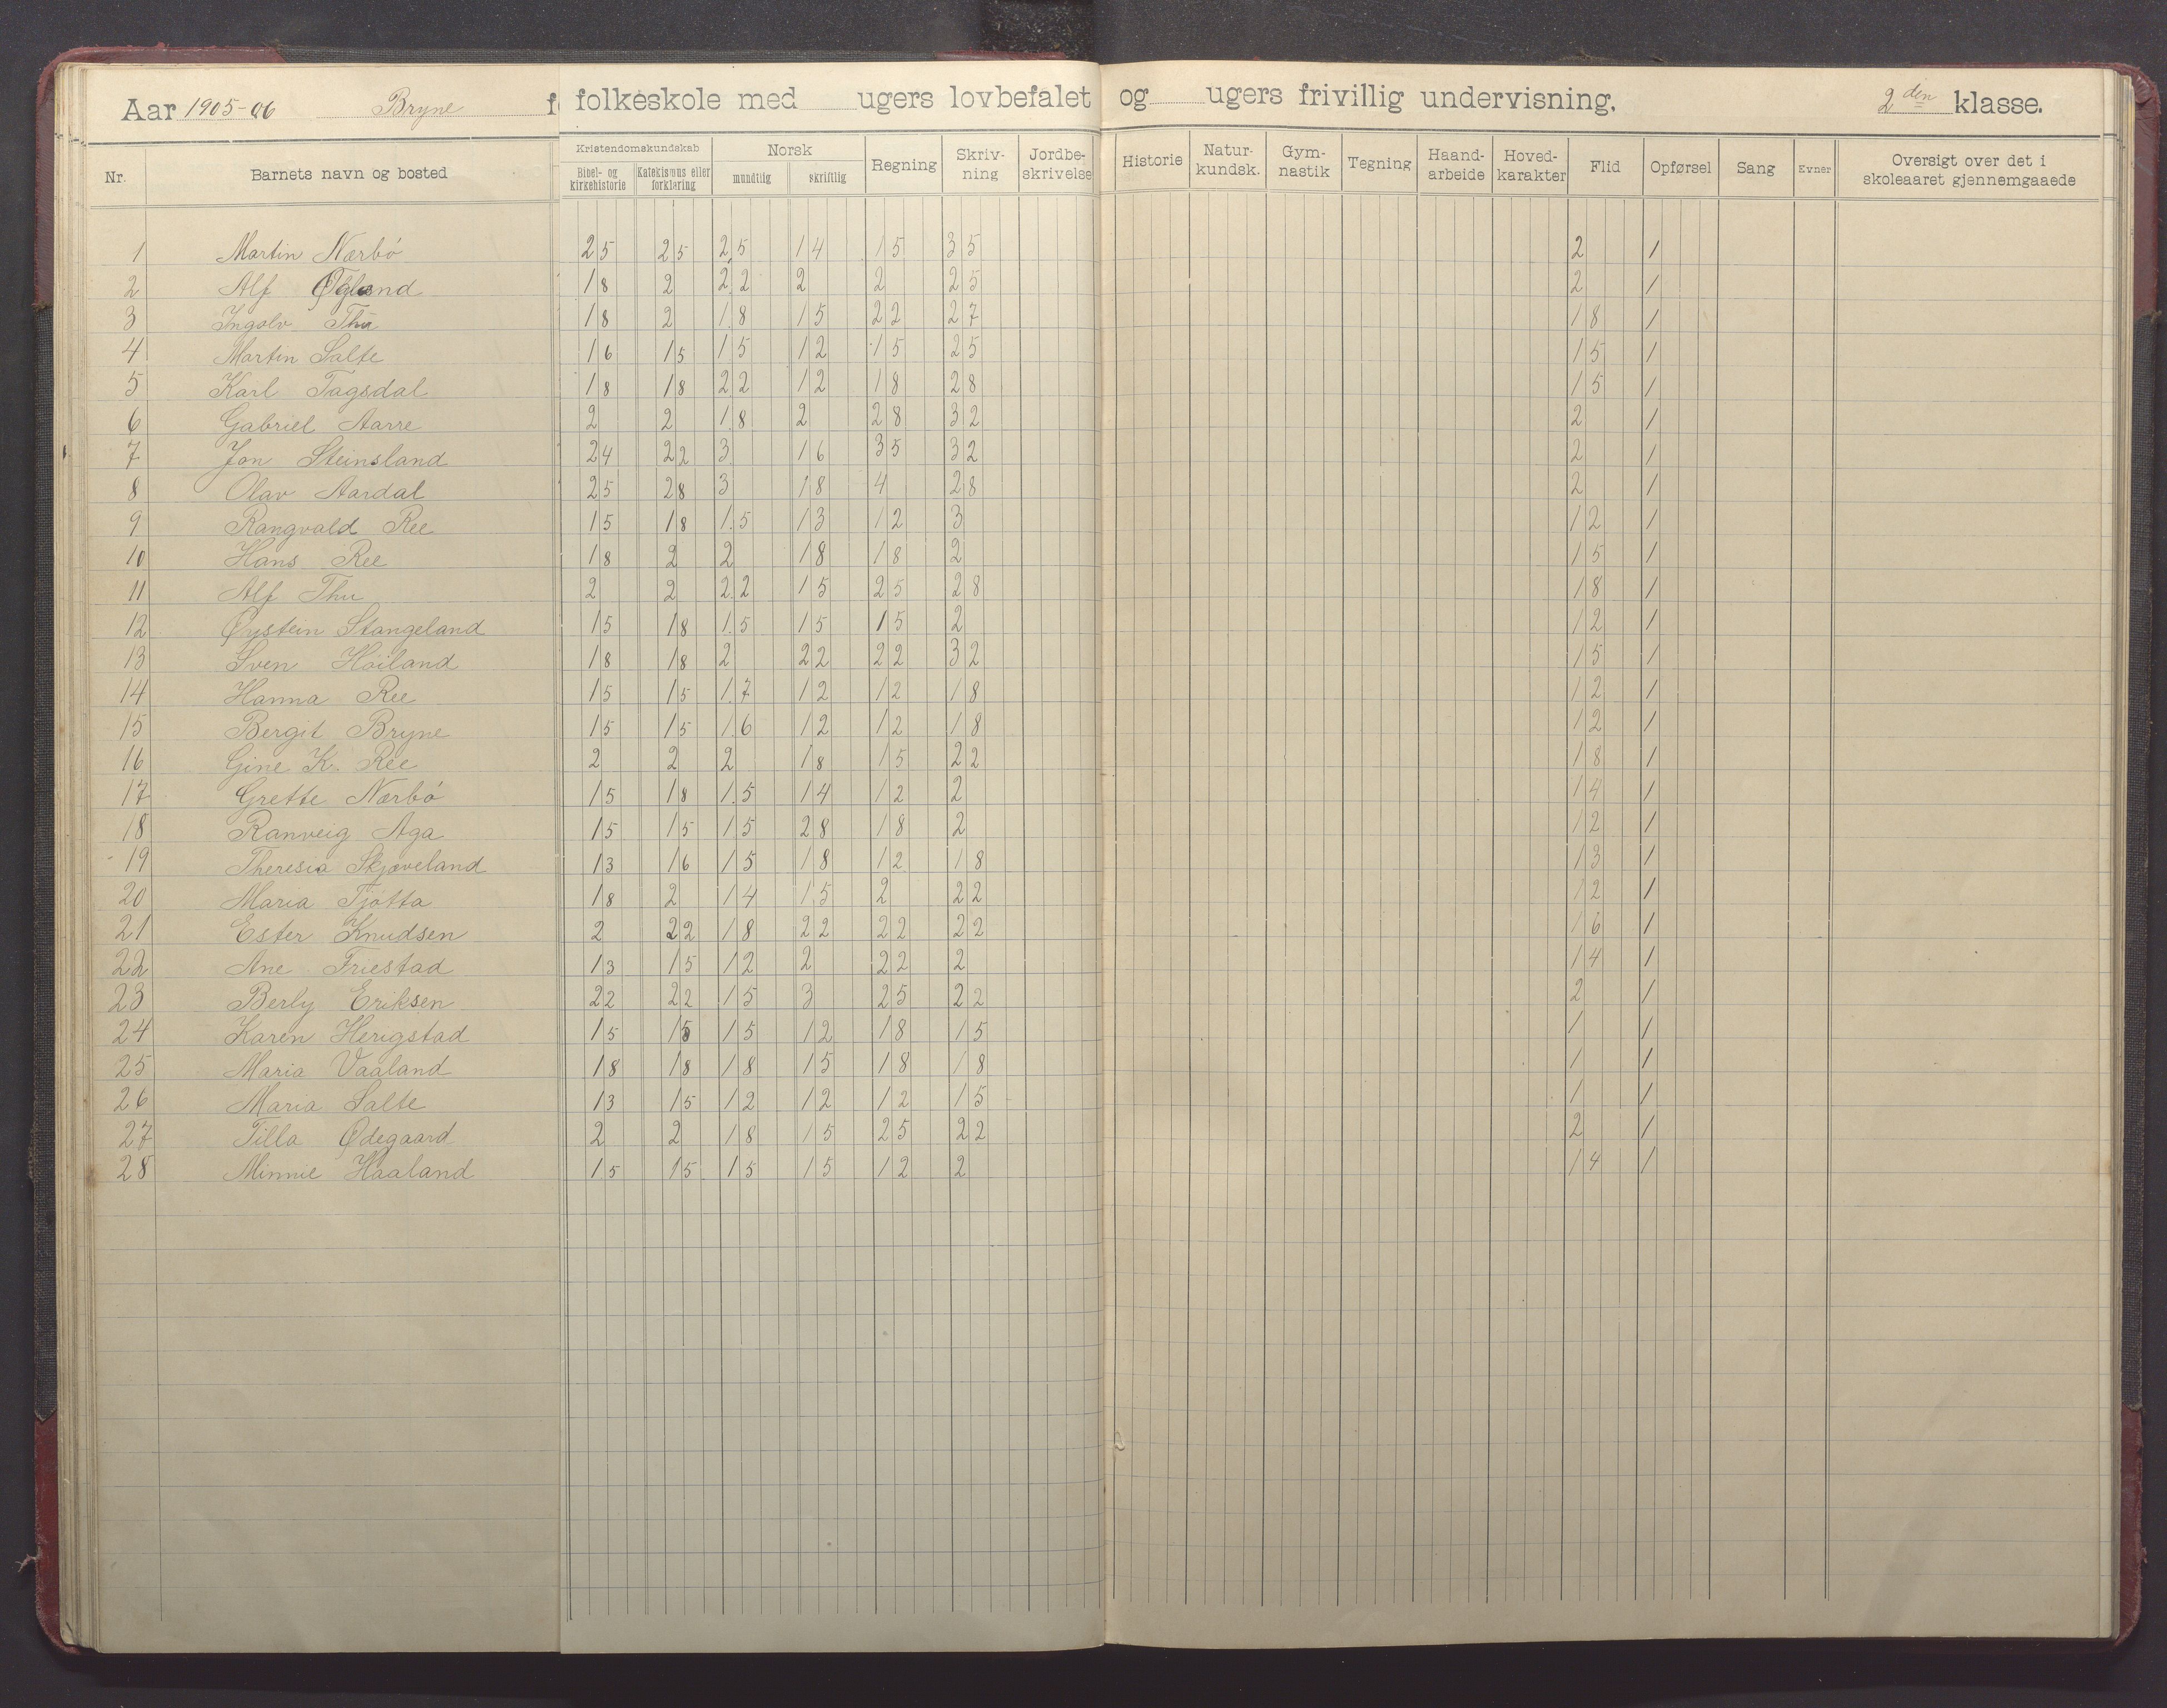 Aar 1905-06 Bryne folkeskole med ugers lovbefalet og ugers frivillig undervisning. 2den klasse.
Nr. Barnets navn og bosted Kristendomskundskab Bibel- og kirkehistorie Katekismus eller forklaring Norsk mundtlig skriftlig Regning Skriv-ning Jordbe-skrivelse Historie Natur-kundsk. Gym-nastik Tegning Haand-arbeide Hoved-karakter Flid Opførsel Sang Evner Oversigt over det i skoleaaret gjennemgaaede
1 Martin Nærbö 25 25 25 14 15 35 2 1
2 Alf Øgland 18 2 2.2 2 2 25 2 1
3 Ingolv Thu 18 2 1.8 15 22 27 18 1
4 Martin Salte 16 15 15 12 15 25 15 1
5 Karl Tagsdal 18 18 22 12 18 28 15 1
6 Gabriel Aarre 2 2 1.8 2 28 32 2 1
7 Jon Steinsland 24 22 3 16 35 32 2 1
8 Olav Aardal 25 28 3 18 4 28 2 1
9 Rangvald Ree 15 18 1.5 13 12 3 12 1
10 Hans Ree 18 2 2 18 18 2 15 1
11 Alf Thu 2 2 2.2 15 25 28 18 1
12 Øystein Stangeland 15 18 1.5 15 15 2 12 1
13 Sven Höiland 18 18 2 22 22 32 15 1
14 Hanna Ree 15 15 1.7 12 12 18 12 1
15 Bergit Bryne 15 15 1.6 12 12 18 12 1
16 Gine K. Ree 2 2 2 18 15 22 18 1
17 Grette Nærbö 15 18 1.5 14 12 2 14 1
18 Ranveig Aga 15 15 15 28 18 2 12 1
19 Theresia Skjæveland 13 16 15 18 12 18 13 1
20 Maria Tjötta 18 2 14 15 2 22 12 1
21 Ester Knudsen 2 22 18 22 22 22 16 1
22 Ane Friestad 13 15 12 2 22 2 14 1
23 Berly Eriksen 22 22 15 3 25 22 2 1
24 Karen Herigstad 15 15 15 12 18 15 1 1
25 Maria Vaaland 18 18 18 15 18 18 1 1
26 Maria Salte 13 15 12 12 12 15 1 1
27 Tilla Ødegaard 2 2 18 15 25 22 2 1
28 Minnie Haaland 15 15 15 15 12 2 14 1